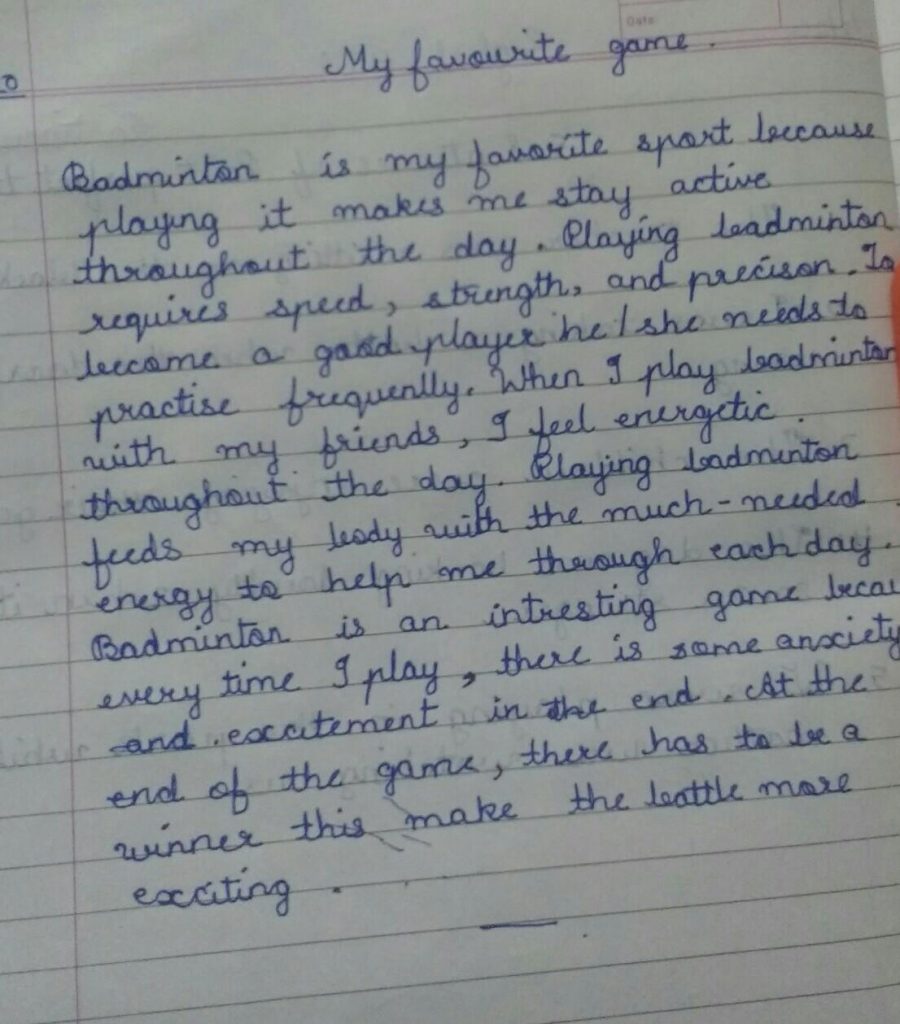 Date
My favourite game.
Badminton is my favorite sport because
playing it makes me stay active
throughout the day. Playing badminton
requires speed, strength, and precison. To
become a good player he/she needs to
practise frequenlly. When I play badminton
with my friends, I feel energetic.
throughout the day. Playing badminton
feeds my body with the much-needed
energy to help me through each day.
Badminton is an intresting game becau
every time I play, there is some anxiety
and excitement in the end. At the
end of the game, there has to be a
winner this make the battle more
exciting.